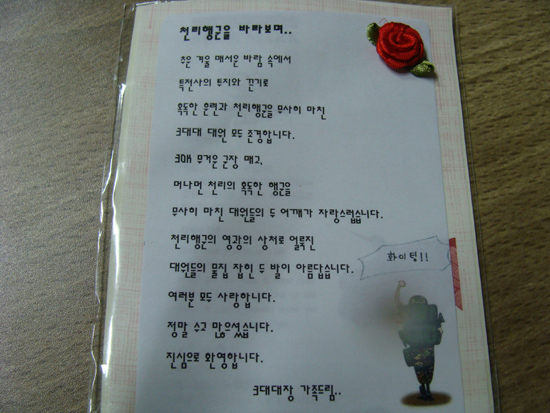 천리행군을 바라보며..
추운 겨울 매서운 바람 속에서
특전사의 투지와 끈기로
혹독한 훈련과 천리행군을 무사히 마친
3대대 대원 모두 존경합니다.
30K 무거운 군장 매고,
머나먼 천리의 혹독한 행군을
무사히 마친 대원들의 두 어깨가 자랑스럽습니다.
천리행군의 영광의 상처로 얼룩진
대원들의 물집 잡힌 두 발이 아름답습니다.
화이팅!!
여러분 모두 사랑합니다.
정말 수고 많으셨습니다.
진심으로 환영합니다.
3대대장 가족드림..